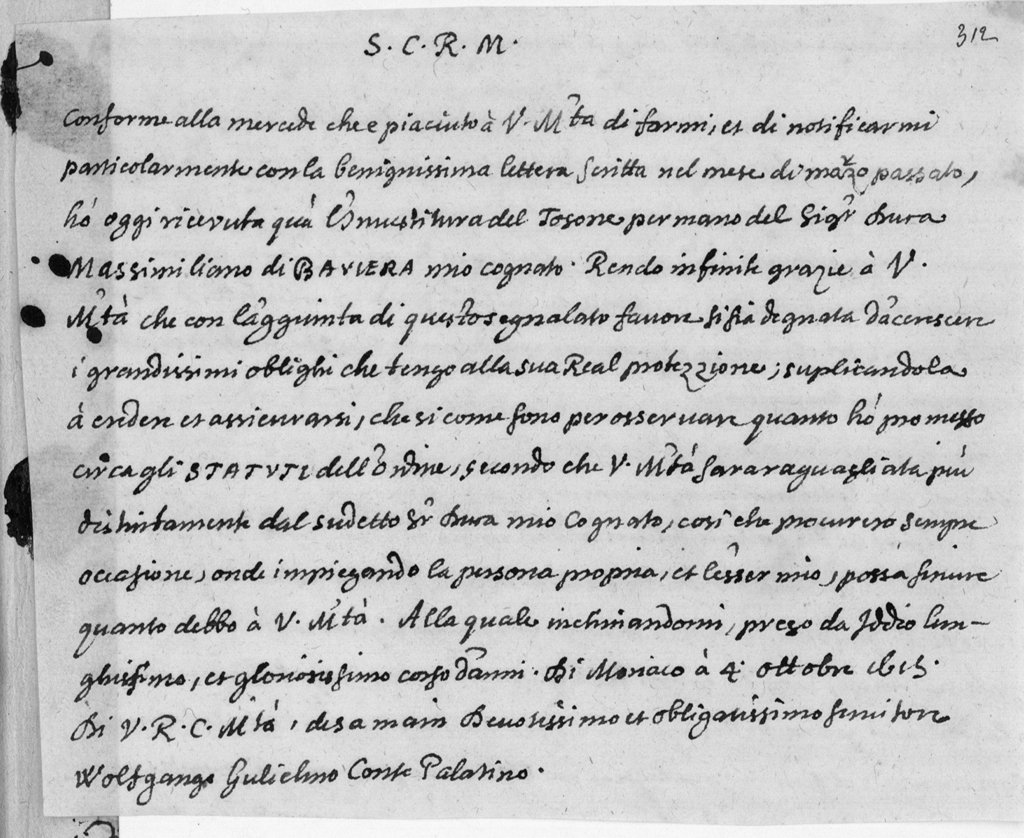 312
S. C. R. M.
Conforme alla mercede che e piaciuto à V. Mtà di farmi, et di notificarmi
particolarmente con la benignissima lettera scritta nel mese di marzo passato,
hó oggi ricevuta quà l'Investitura del Tosone per mano del Sigr Duca
Massimiliano di BAVIERA mio cognato. Rendo infinite grazie à V.
Mtà che con l'aggiunta di questo segnalato favore si sia degnata d'accrescere
i grandissimi oblighi che tengo alla sua Real protezzione; suplicandola
à creder et assicurarsi, che si come sono per osservare quanto hó promesso
circa gli STATVTI dell'Ordine, secondo che V. Mtà sara raguagliata più
distintamente dal sudetto Sr Duca mio Cognato, cosi che procurero sempre
occasione, onde impiegando la persona propria, et l'esser mio, possa servire
quanto debbo à V. Mtà. Alla quale inchinandomi, prego da Iddio lun-
ghissimo, et gloriosissimo corso d'anni. Di Monaco à 4 ottobre 1615.
Di V. R. C. Mtà, de sa main Devotissimo et obligatissimo servitore
Wolfgango Gulielmo Conte Palatino.